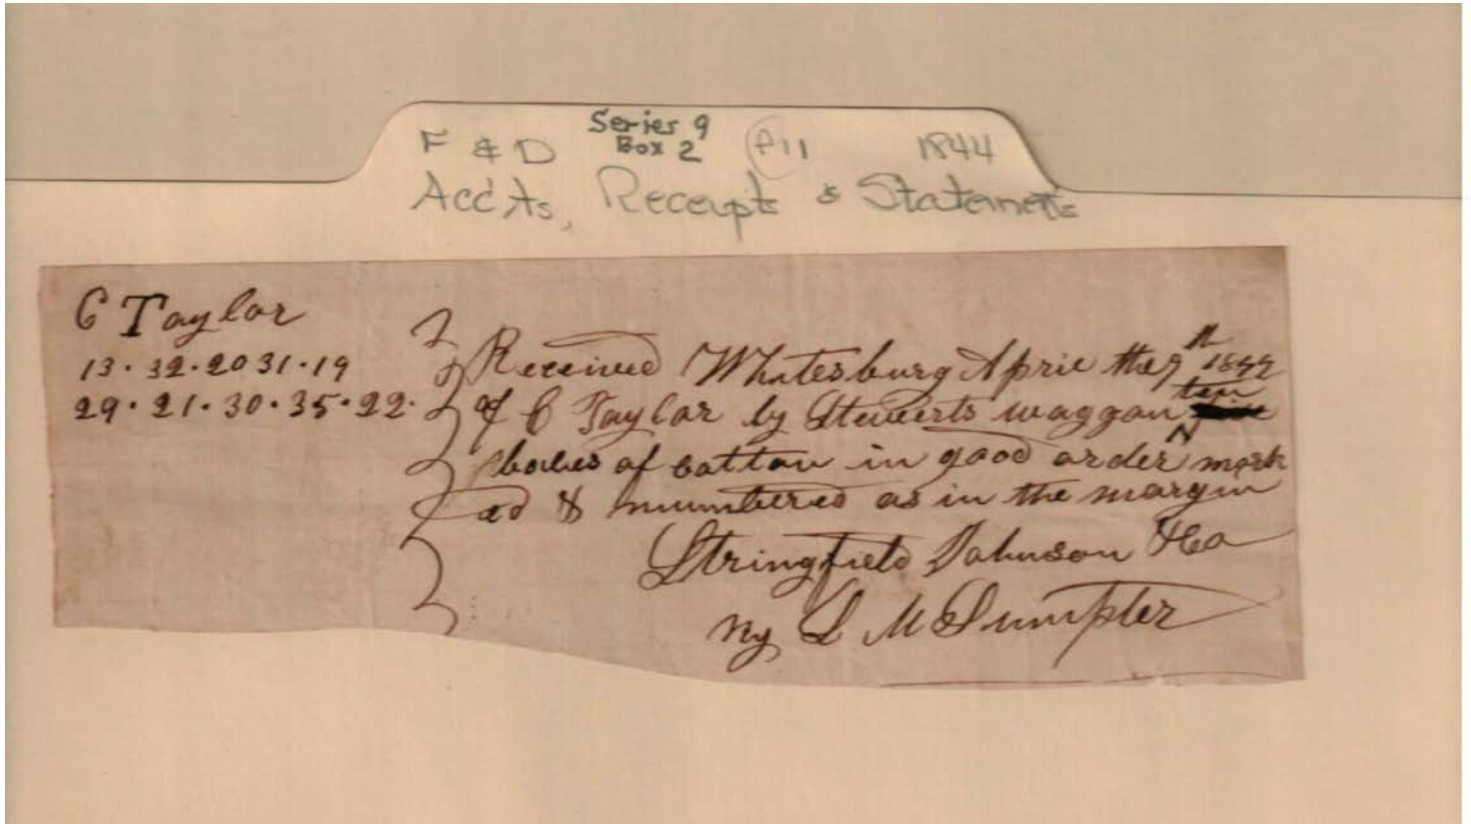 F & D Series 9 Box 2 F11 1844
Acc'ts, Receipts & Statements
C Taylor
13 · 32 · 20 31 · 19
29 · 21 · 30 · 35 · 22 ·
Received Whitesburg April the 9th 1844
of C Taylor by Stewerts waggon ten
bales of cotton in good order mark
ed & numbered as in the margin
Stringfield Johnson & Co
By L M Sumpter